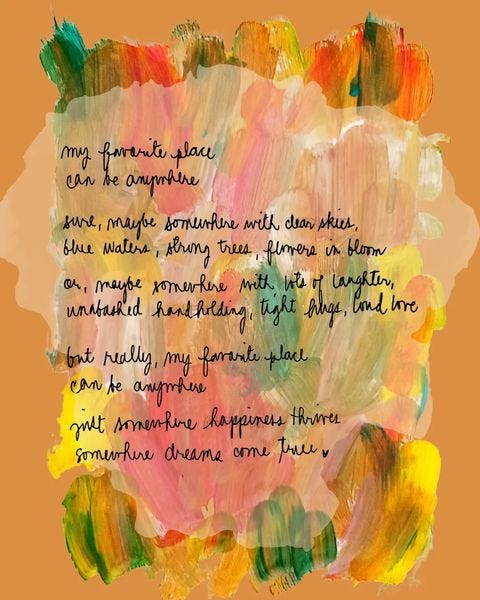 my favorite place
can be anywhere
sure, maybe somewhere with clear skies,
blue waters, strong trees, flowers in bloom
or, maybe somewhere with lots of laughter,
unabashed handholding, tight hugs, loud love
but really, my favorite place
can be anywhere
just somewhere happiness thrives
somewhere dreams come true ♥